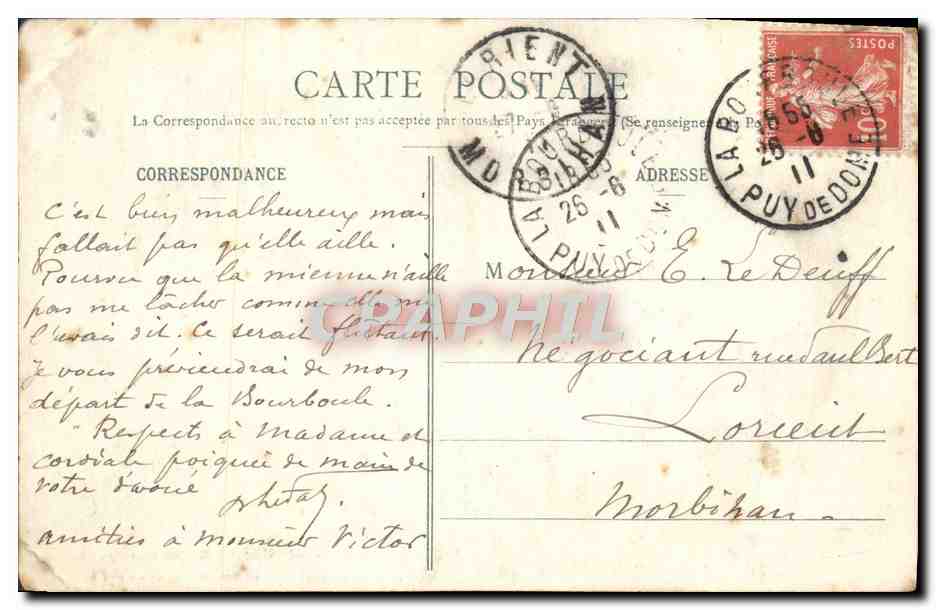 CARTE POSTALE
La Correspondance au recto n'est pas acceptée par tous les Pays étrangers (Se renseigner à la Poste)
CORRESPONDANCE
c'est bien malheureux mais
fallait pas qu'elle aille.
Pourvu que la mienne n'aille
pas me lâcher comme elle me
l'avais dit. Ce serait
Je vous préviendrai de mon
départ de la Bourboule.
Respects à Madame et
cordiale poignée de main de
votre dévoué
amitiés à Monsieur Victor
ADRESSE
Monsieur E. Le Deuff
Négociant rue Paul Bert
Lorient
Morbihan
LORIENT
MORBIHAN
LA BOURBOULE
26 -6
11
PUY DE DOME
LA BOURBOULE
26 -6
11
PUY DE DOME
POSTES
10
CPAPHIL